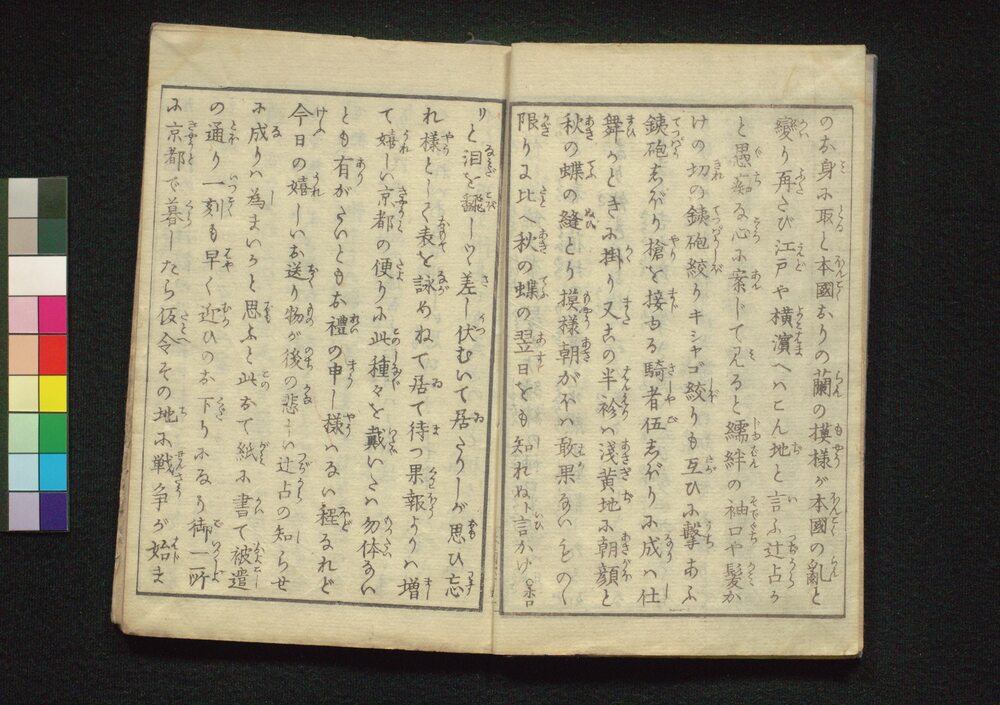 のお身に取と本國なりの蘭の摸様が本國の亂と
變り再たび江戸や横濱へはこん地と言ふ辻占か
と愚痴な心に案じて見ると襦袢の袖口や髪か
けの切の銕砲絞りキシャゴ絞りも互ひに撃あふ
銕砲玉なり槍を接もる騎者伍しぼりに成は仕
舞しどきに掛り又この半衿は浅黄地に朝顔と
秋の蝶の縫とり摸様朝がほは敢果ないものゝ
限りに比へ秋の蝶の翌日をも知れぬト言かけ
りと泪を飜しつゝ差し伏むいて居たりしが思ひ忘
れ様としては表を詠めねて居て待つ果報よりは増
て嬉しい京都の便りに此種々を戴いたは勿体ない
とも有がたいともお禮の申し様はない程なれど
今日の嬉しいお送り物が後の悲しい辻占の知らせ
に成りは為まいかと思ふと此なて紙に書て被遣
の通り一刻も早く迎ひのお下りになり御一所
に京都で暮したら仮令その地に戦争が始ま